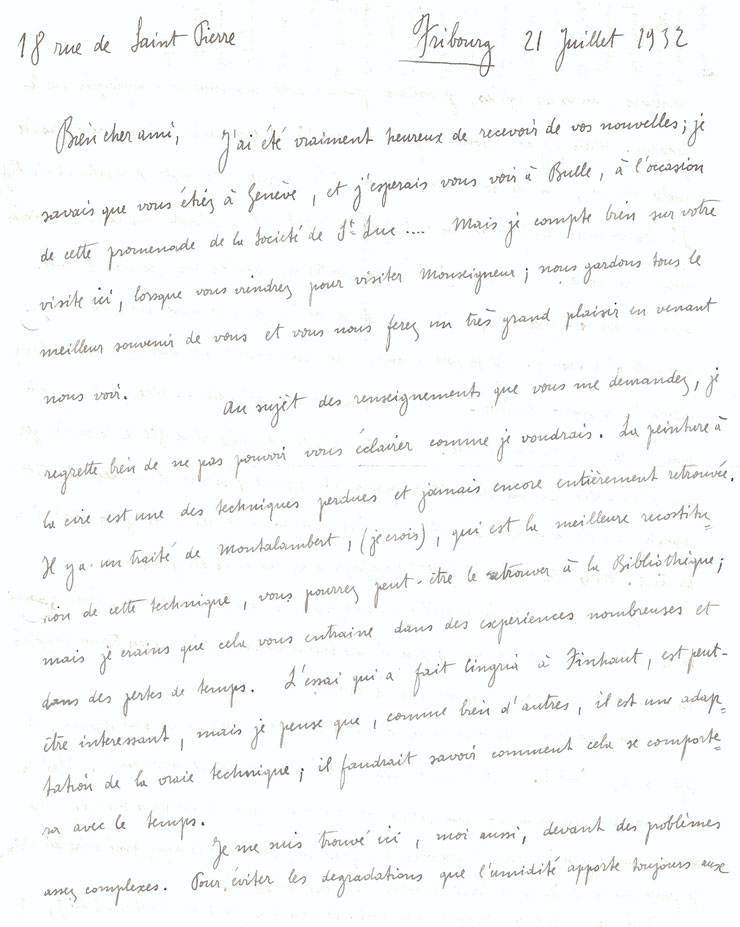 18 rue de Saint Pierre Fribourg 21 Juillet 1932
Bien cher ami, J'ai été vraiment heureux de recevoir de vos nouvelles; je
savais que vous étiez à Genève, et j'esperais vous voir à Bulle, à l'occasion
de cette promenade de la Societé de St. Luc .... Mais je compte bien sur votre
visite ici, lorsque vous viendrez pour visiter Monseigneur; nous gardons tous le
meilleur souvenir de vous et vous nous ferez un très grand plaisir en venant
nous voir. Au sujet des renseignements que vous me demandez, je
regrette bien de ne pas pouvoir vous éclairer comme je voudrais. La peinture à
la cire est une des techniques perdues et jamais encore entièrement retrouvée.
Il y a un traité de Montalambert, (je crois), qui est la meilleure recostitu=
tion de cette technique, vous pourrez peut-être le retrouver à la Bibliothèque;
mais je crains que cela vous entraine dans des experiences nombreuses et
dans des pertes de temps. L'essai qui a fait Cingria à Finhaut, est peut-
être interessant, mais je pense que, comme bien d'autres, il est une adap=
tation de la vraie technique; il faudrait savoir comment cela se comporte=
ra avec le temps.
Je me suis trouvé ici, moi aussi, devant des problèmes
assez complexes. Pour éviter les degradations que l'umidité apporte toujours aux